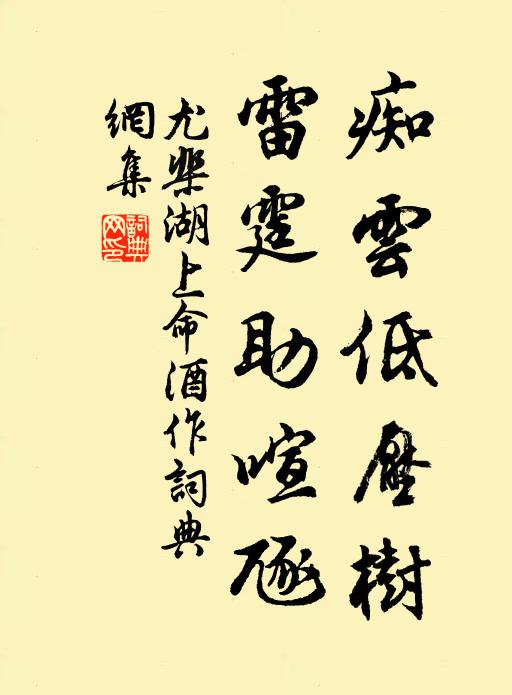 痴雲低壓樹
雷霆助喧豗
尤棐湖上命酒作詞典
網集
詞典網印